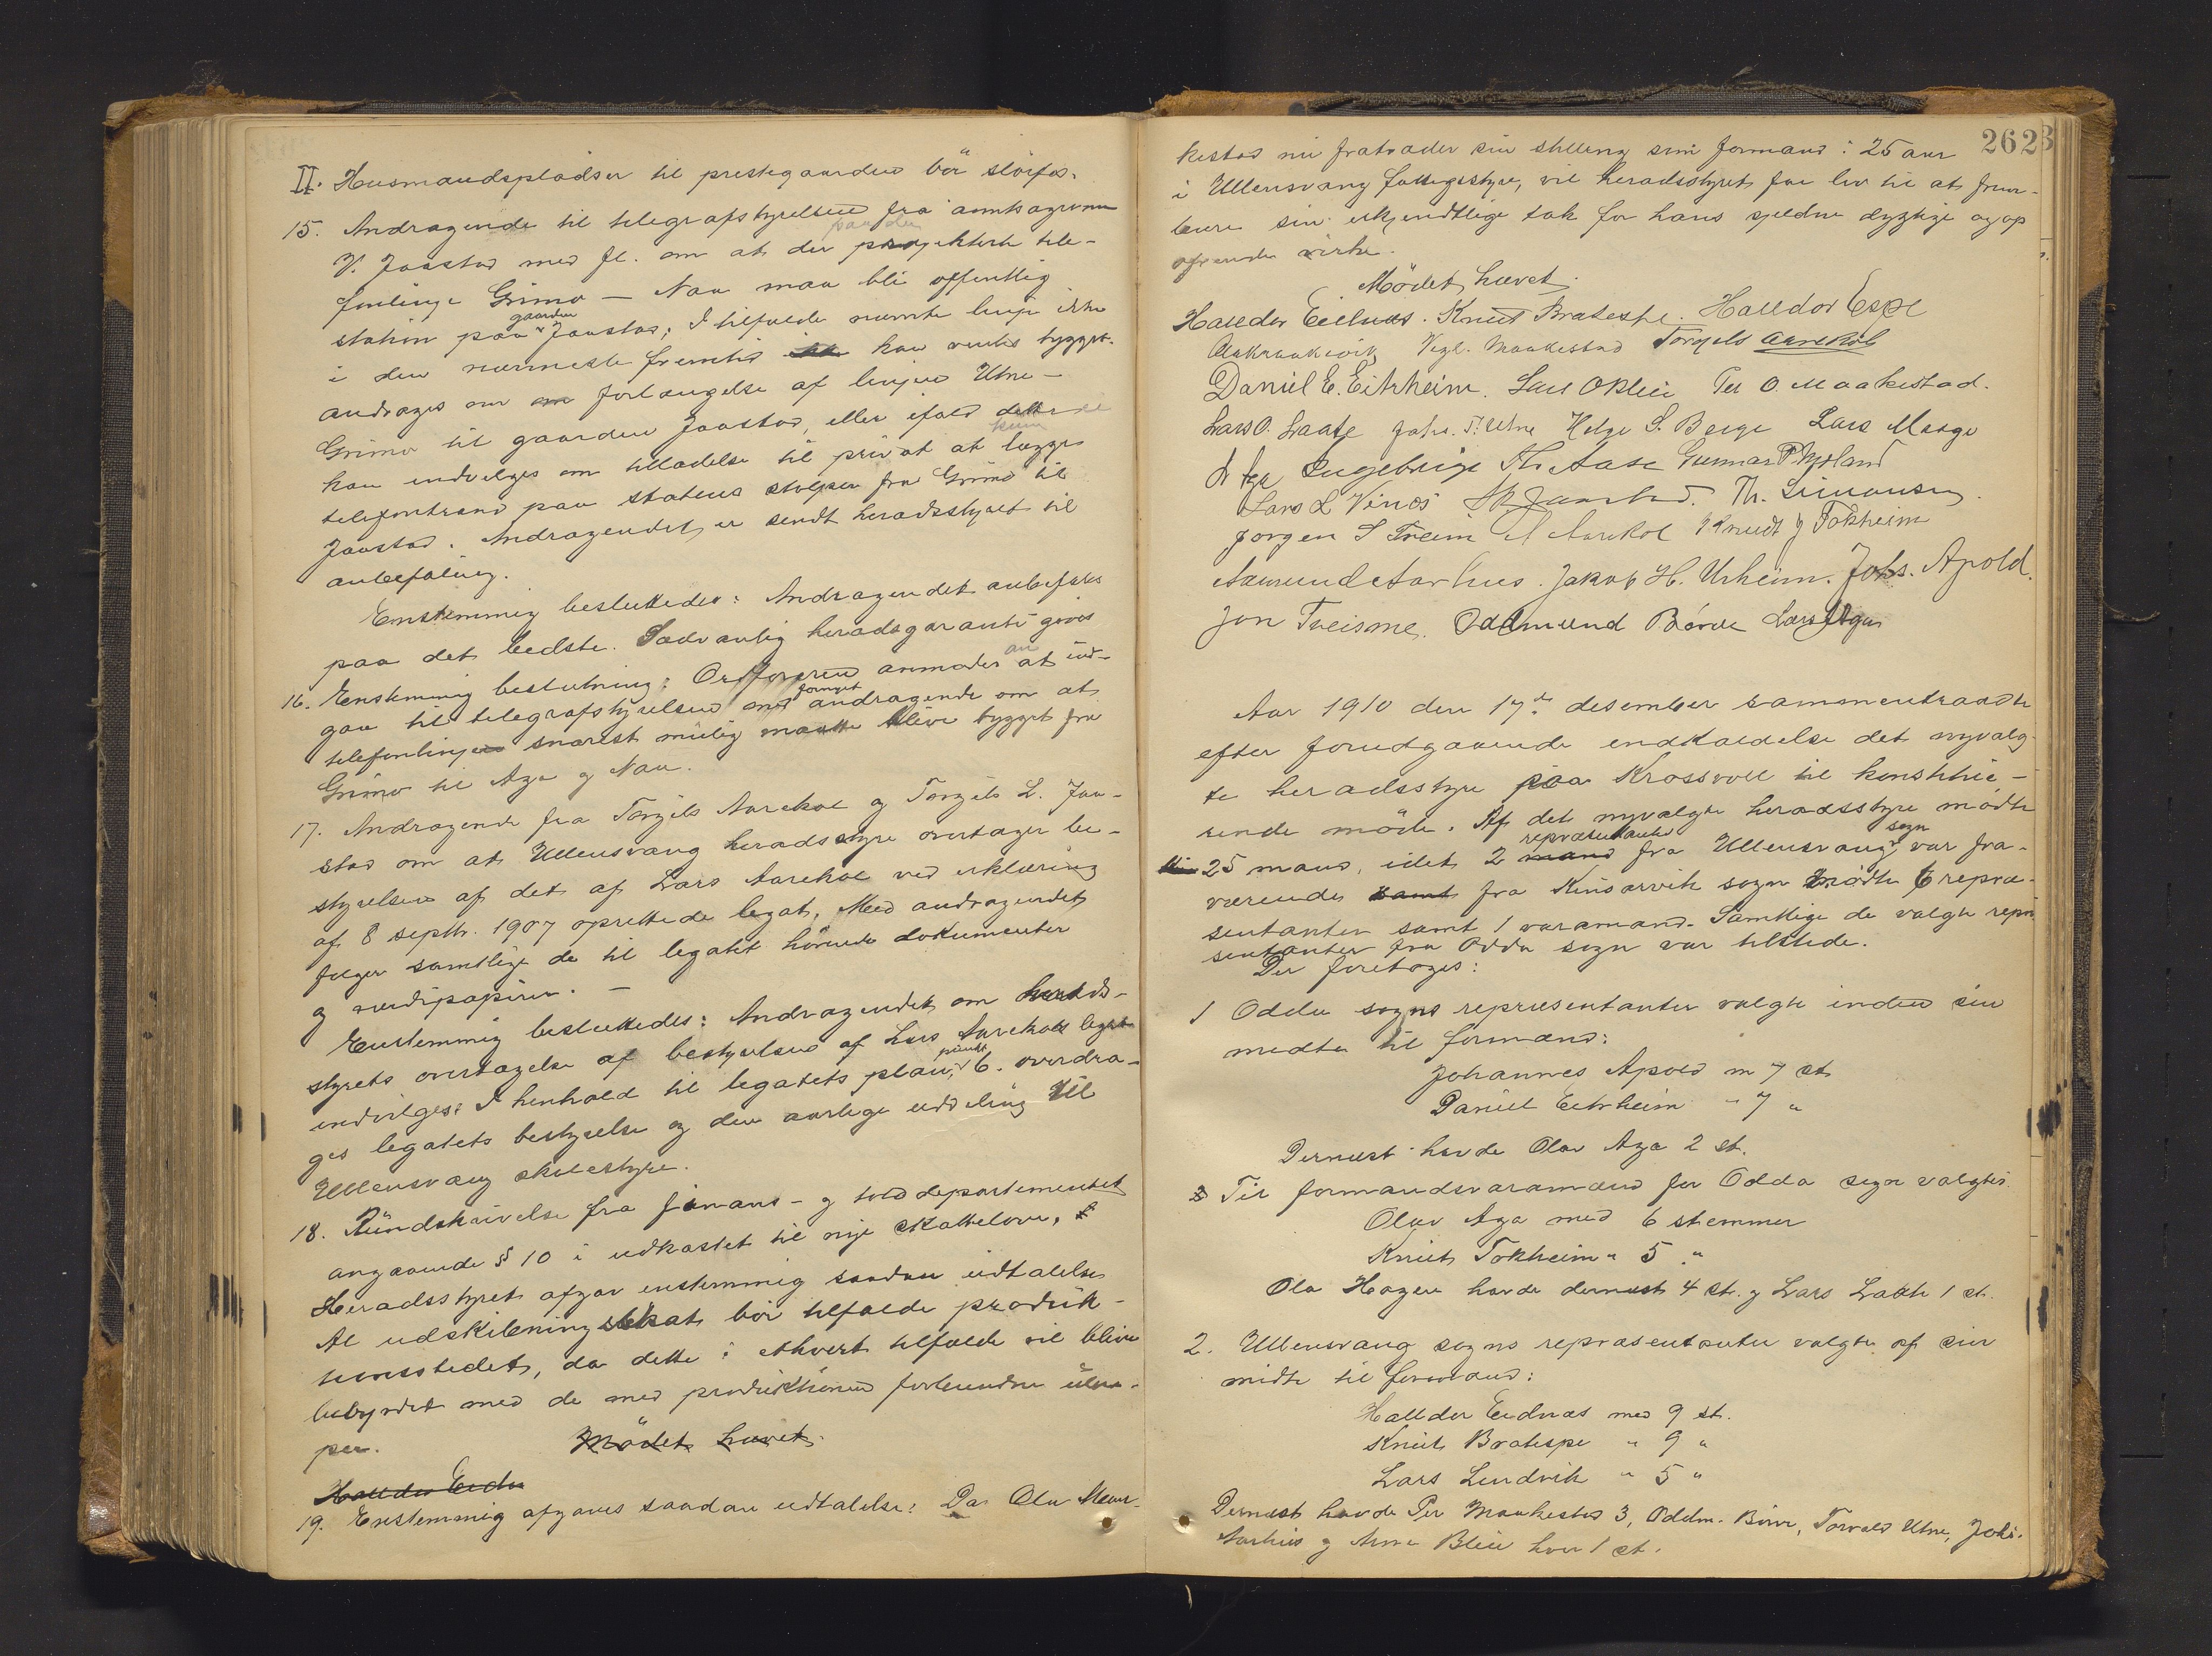 II. Husmandspladser til prestegaarden bör slöifes.
15. Andragende til telegrafstyrelsen fra amtsagronom
V. Jaastad med fl. om at der paa den projekterte tele-
fonlinje Grimo — Naa maa bli offentlig
station paa gaarden Jaastad; I tilfælde nævnte linje ikke
i den nærmeste fremtid kan ventes bygget.
andrages om forlængelse af linjen Utne —
Grimo til gaarden Jaastad, eller ifald dette ei
kan indvilges om tilladelse til privat at lægge
telefontraad paa statens stolper fra Grimo til
Jaastad. Andragendet er sendt heradsstyret til
anbefaling.
Enstemmig besluttedes: Andragendet anbefales
paa det bedste. Sædvanlig heradsgaranti gives
16. Enstemmig beslutning: Ordföreren anmodes an at ind-
gaa til telegrafstyrelsen med fornyet andragende om at
telefonlinjen snarest mulig maatte blive bygget fra
Grimo til Aga og Naa.
17. Andragende fra Torgils Aarekol og Torgils L. Jaa-
stad om at Ullensvang heradsstyre overtager be-
styrelsen af det af Lars Aarekol ved erklæring
af 8 septbr. 1907 oprettede legat. Med andragendet
fölger samtlige de til legatet hörende dokumenter
og verdipapirer. —
Enstemmig besluttedes: Andragendet om herads-
styrets overtagelse af bestyrelsen af Lars Aarekols legat
indvilges: I henhold til legatets plan, punkt 6. overdra-
ges legatets bestyrelse og den aarlige uddeling til
Ullensvang skolestyre.
18. Rundskrivelse fra finans- og tolddepartementet
angaaende § 10 i udkastet til nye skattelove,
Heradsstyret afgav enstemmig saadan udtalelse
At udskilningsskat bör tilfalde produk-
tionsstedet, da dette i ethvert tilfælde vil blive
bebyrdet med de med produktionen forbundne ulem-
per. Mödet hævet.
Halldor Eidn
19. Enstemmig afgaves saadan udtalelse: Da Olav Maa-
262
kestad nu fratræder sin stilling som formand i 25 aar
i Ullensvang fattigstyre, vil heradsstyret faa lov til at frem-
bære sin erkjendtlige tak for hans sjeldne dygtige og op
ofrende virke.
Mödet hævet.
Halldor Eidnes. Knut Bratespe. Halldor Espe
Vegl. Maakestad Torgils Aarekol
Daniel E. Eitrheim. Lars O Kleii Per O Maakestad.
Lars O. Laate Johs. T. Utne Helge S. Berge Lars Maage
O Aga Ingebrigt Th. Aase Gunnar P Mæland
Lars L Vinæs Jaastad. Th. Simonsen.
Jorgen S Freim A Aarekol Knudt J Tokheim
Aamund Aarhus. Jakob H. Urheim. Johs. Apold.
Jon Treisme. Oddmund Börve Lars Aga
Aar 1910 den 17de desember sammentraadte
efter forudgaaende indkaldelse det nyvalg-
te heradsstyre paa Krossvoll til konstitue-
rende möde. Af det nyvalgte heradsstyre mödte
25 mand, idet 2 mand repræsentanter fra Ullensvang sogn var fra-
værende samt fra Kinsarvik sogn mödte 6 repræ-
sentanter samt 1 varamand. Samtlige de valgte repræ
sentanter fra Odda sogn var tilstede.
Der foretoges:
1 Odda sogns repræsentanter valgte inden sin
midte til formænd:
Johannes Apold m 7 st
Daniel Eitrheim " 7 "
Dernæst havde Olav Aga 2 st.
Til formandsvaramænd for Odda sogn valgtes
Olav Aga med 6 stemmer
Knut Tokheim " 5 "
Ola Hagen havde dernæst 4 st. og Lars Laate 1 st.
2. Ullensvang sogns repræsentanter valgte af sin
midte til formænd:
Halldor Eidnæs med 9 st.
Knut Bratespe " 9 "
Lars Lindvik " 5 "
Dernæst havde Per Maakestad 3, Oddm. Börve, Torvald Utne, Johs.
Aarhus og Arne Bleie hver 1 st.